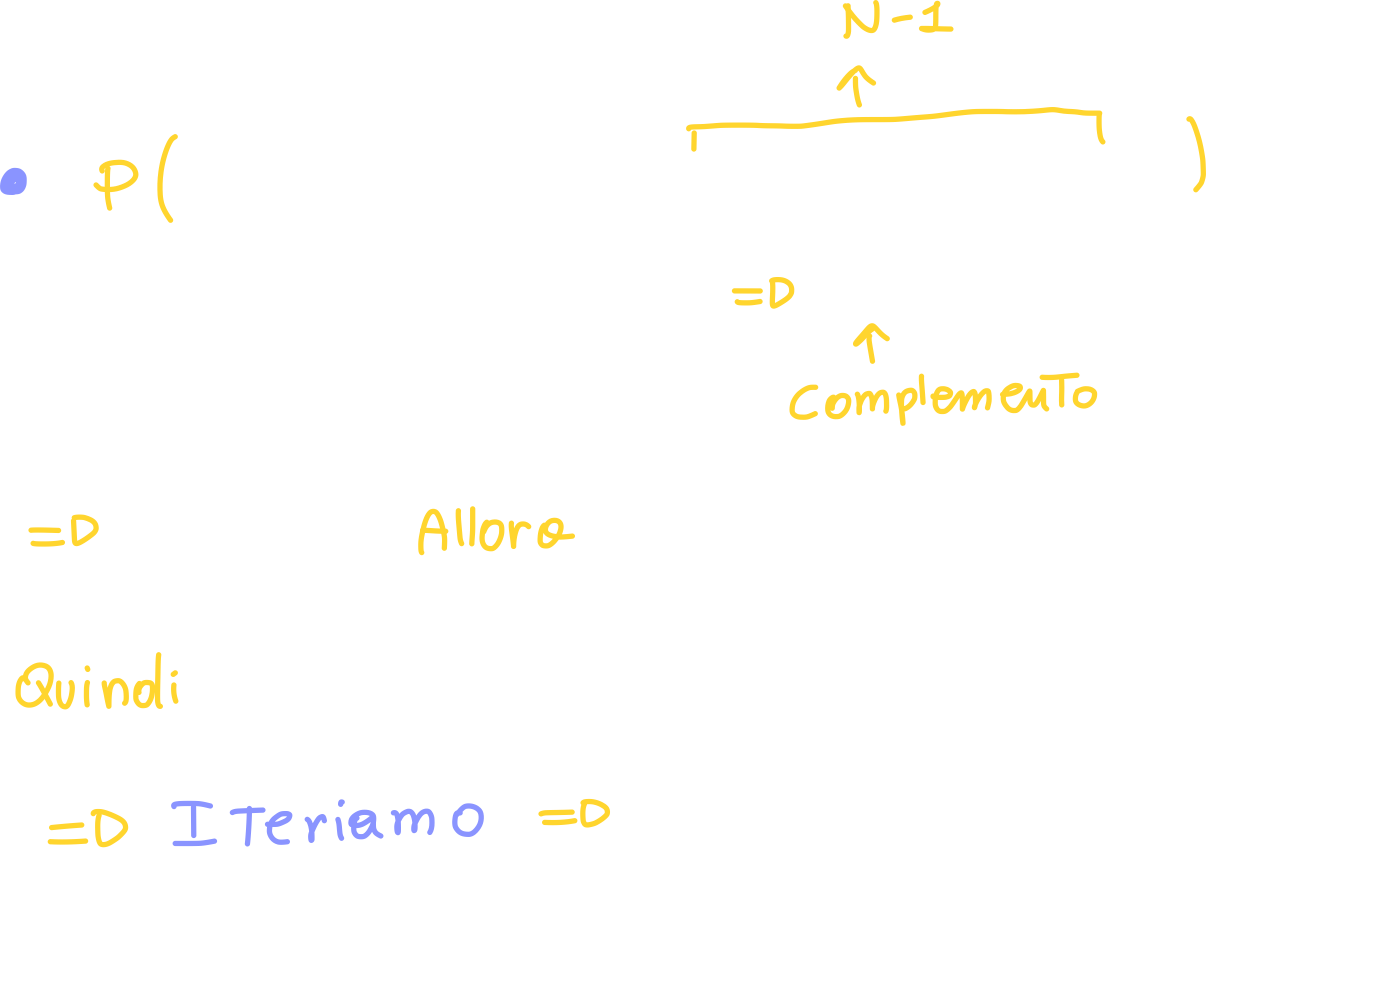 N-1
• P( )
=D
Complemento
=D Allora
Quindi
=D Iteriamo =D